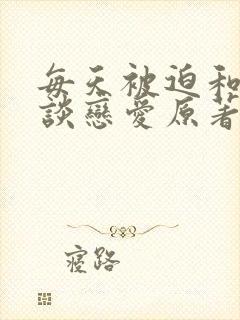 每天被迫和
談戀愛原著
寢路